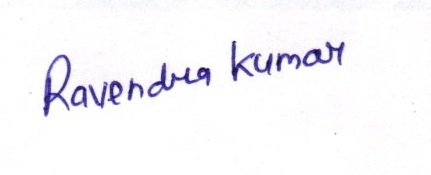 Ravendra Kumar